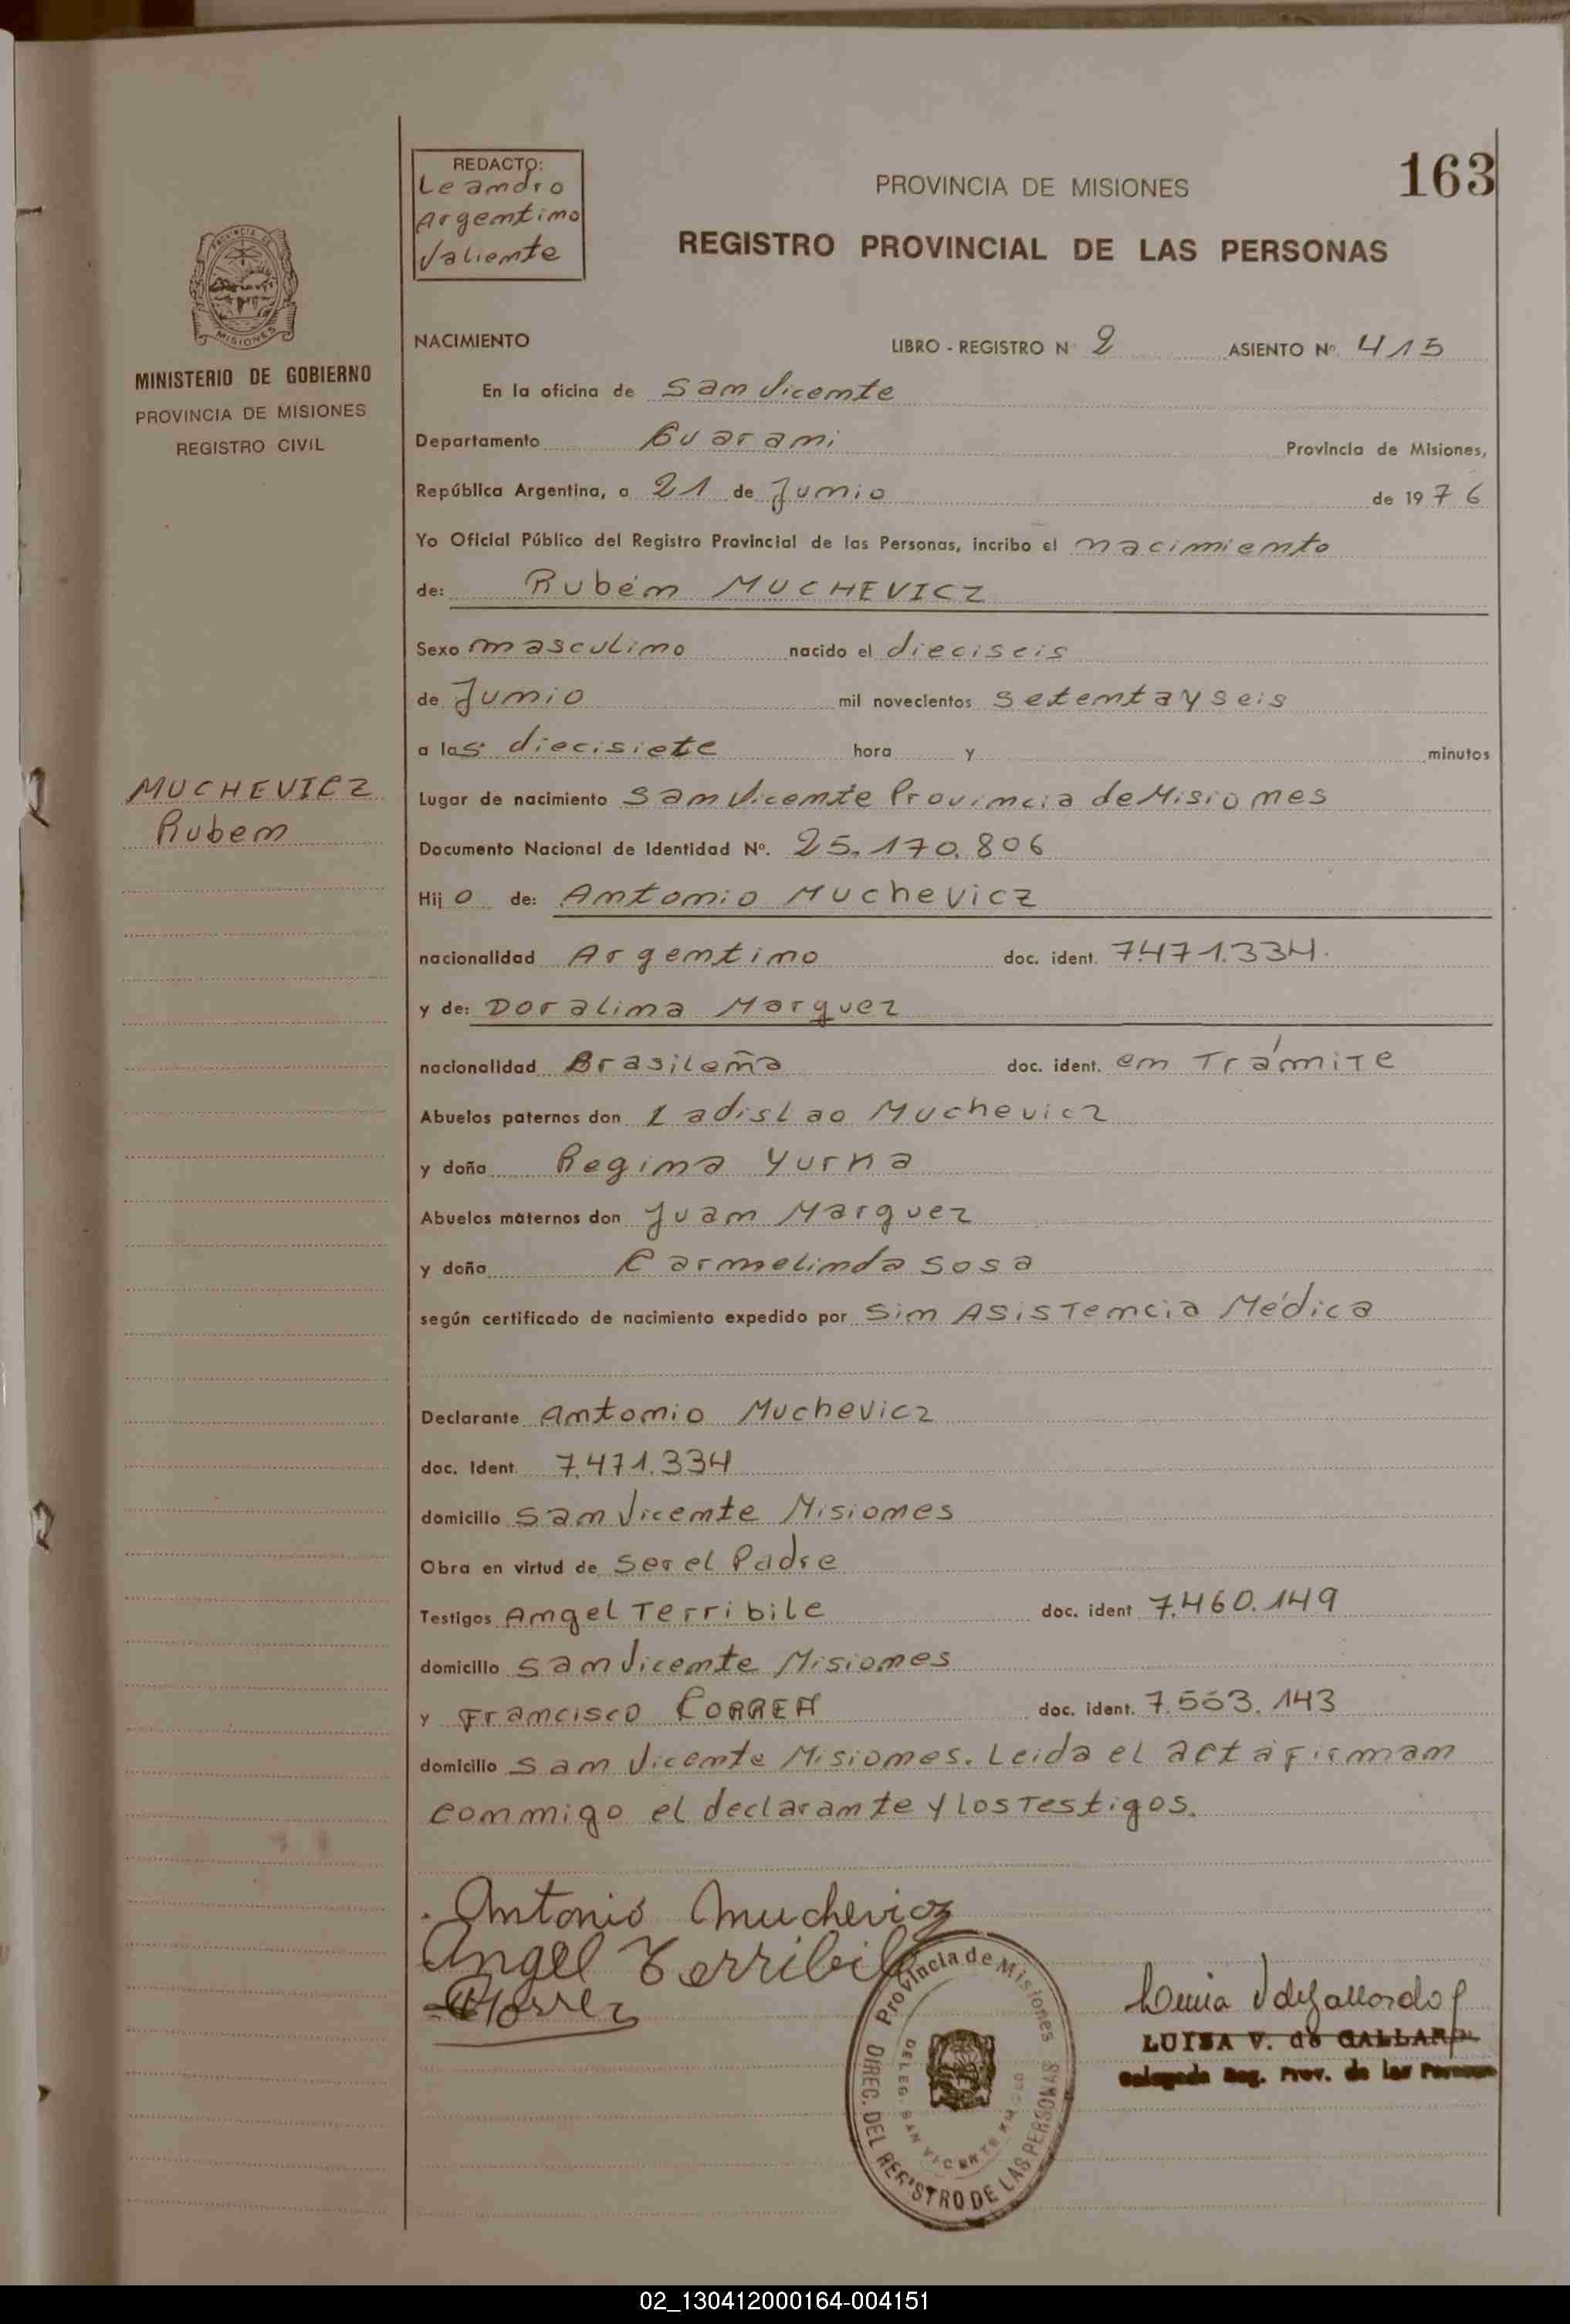 163
REDACTO:
Leandro
Argentino
Valiente
PROVINCIA DE MISIONES
REGISTRO PROVINCIAL DE LAS PERSONAS
PROVINCIA DE
MISIONES
MINISTERIO DE GOBIERNO
PROVINCIA DE MISIONES
REGISTRO CIVIL
NACIMIENTO LIBRO - REGISTRO N° 2 ASIENTO Nº. 415
En la oficina de San Vicente
Departamento Guarani Provincia de Misiones,
República Argentina, a 21 de Junio de 1976
Yo Oficial Público del Registro Provincial de las Personas, incribo el nacimiento
de: Rubén MUCHEVICZ
Sexo masculino nacido el dieciseis
de Junio mil novecientos setentayseis
a las diecisiete hora y minutos
MUCHEVICZ
Ruben
Lugar de nacimiento San Vicente Provincia de Misiones
Documento Nacional de Identidad Nº. 25.170.806
Hijo de: Antonio Muchevicz
nacionalidad Argentino doc. ident. 7.471.334.
y de: Doralina Marquez
nacionalidad Brasileña doc. ident. en Trámite
Abuelos paternos don Ladislao Muchevicz
y doña Regina Yurka
Abuelos maternos don Juan Marquez
y doña Carmelinda Sosa
según certificado de nacimiento expedido por Sin Asistencia Médica
Declarante Antonio Muchevicz
doc. Ident 7.471.334
domicilio San Vicente Misiones
Obra en virtud de Ser el Padre
Testigos Angel Terribile doc. ident 7.460.149
domicilio San Vicente Misiones
y Francisco CORREA doc. ident. 7.563.143
domicilio San Vicente Misiones. Leida el acta firman
conmigo el declarante y los Testigos.
Antonio Muchevicz
Angel Terribile
Provincia de Misiones
DIREC. DEL REGISTRO DE LAS PERSONAS
DELEG. SAN VICENTE
LUISA V. de GALLARDO
Delegada Reg. Prov. de las Personas
02_130412000164-004151